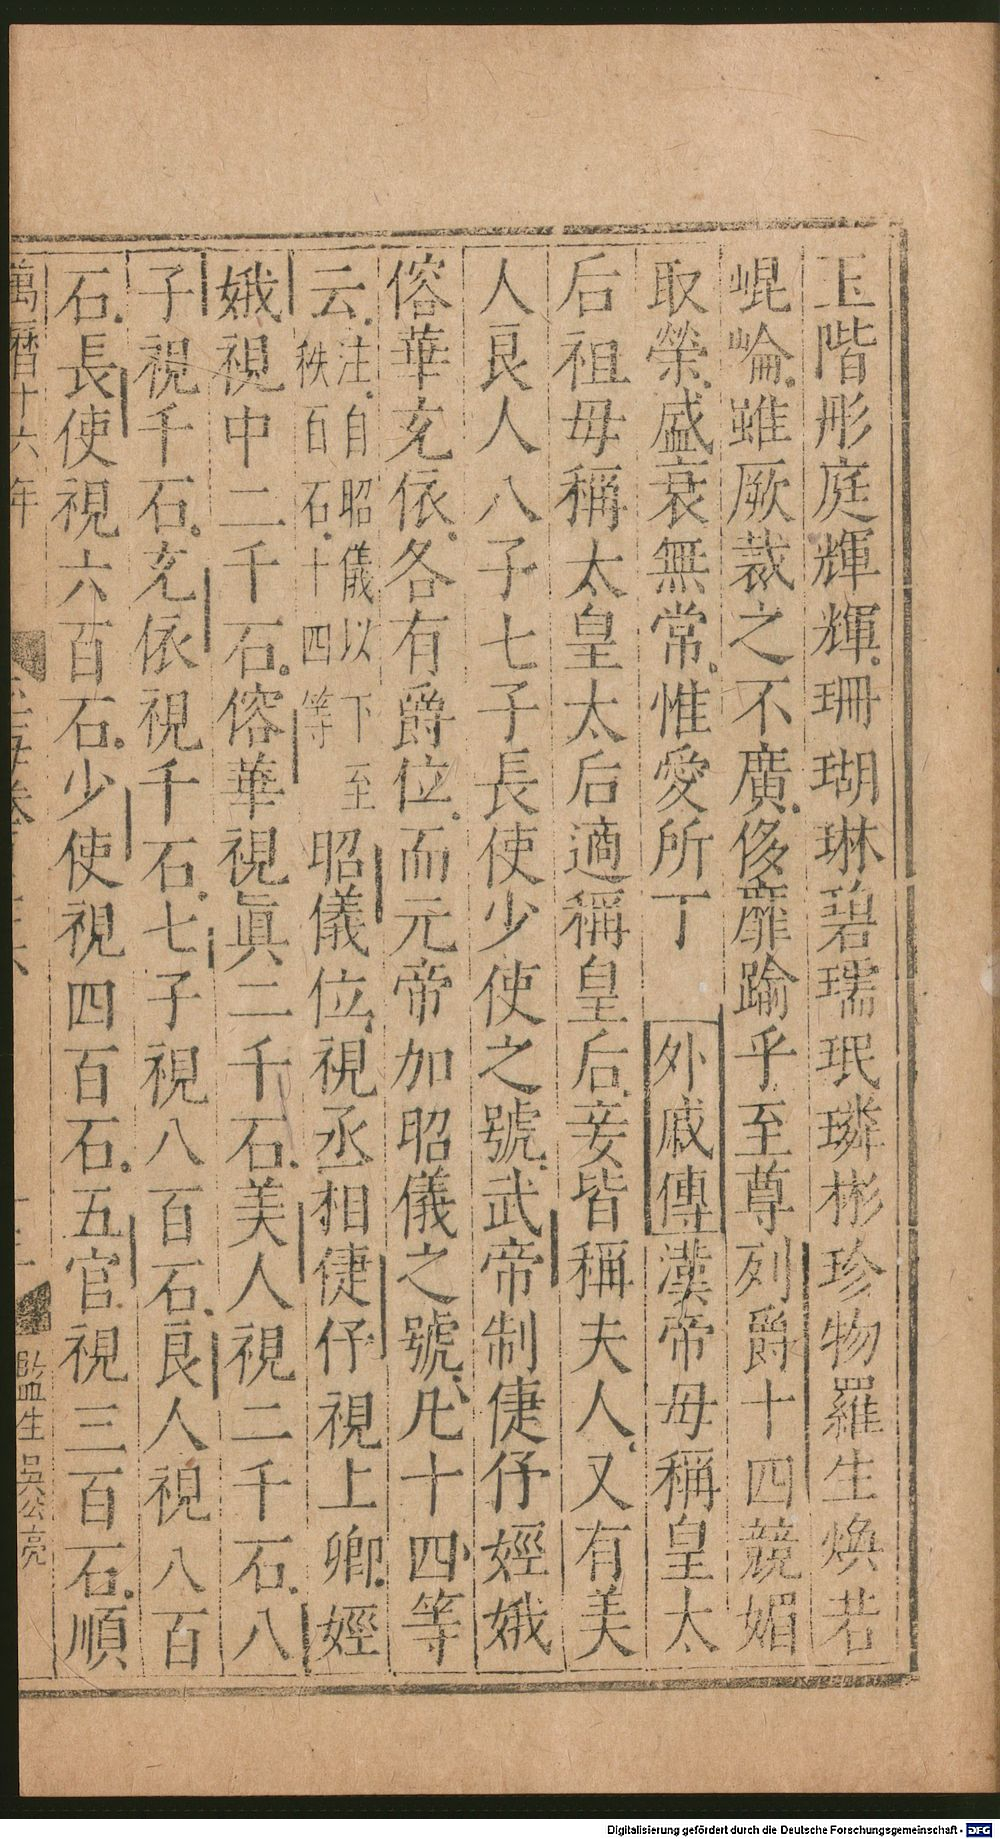 玉階彤庭輝輝珊瑚琳碧瑌珉璘彬珍物羅生煥若
崐崘雖厥裁之不廣侈靡踰乎至尊列爵十四競媚
取榮盛衰無常惟愛所丁 外戚傳漢帝母稱皇太
后祖母稱太皇太后適稱皇后妾皆稱夫人又有美
人良人八子七子長使少使之號武帝制倢伃娙娥
傛華充依各有爵位而元帝加昭儀之號凡十四等
云注自昭儀以下至秩百石十四等昭儀位視丞相倢伃視上卿娙
娥視中二千石傛華視眞二千石美人視二千石八
子視千石充依視千石七子視八百石良人視八百
石長使視六百石少使視四百石五官視三百石順
萬曆十六年 玉海卷 監生吳公亮
Digitalisierung gefördert durch die Deutsche Forschungsgemeinschaft - DFG